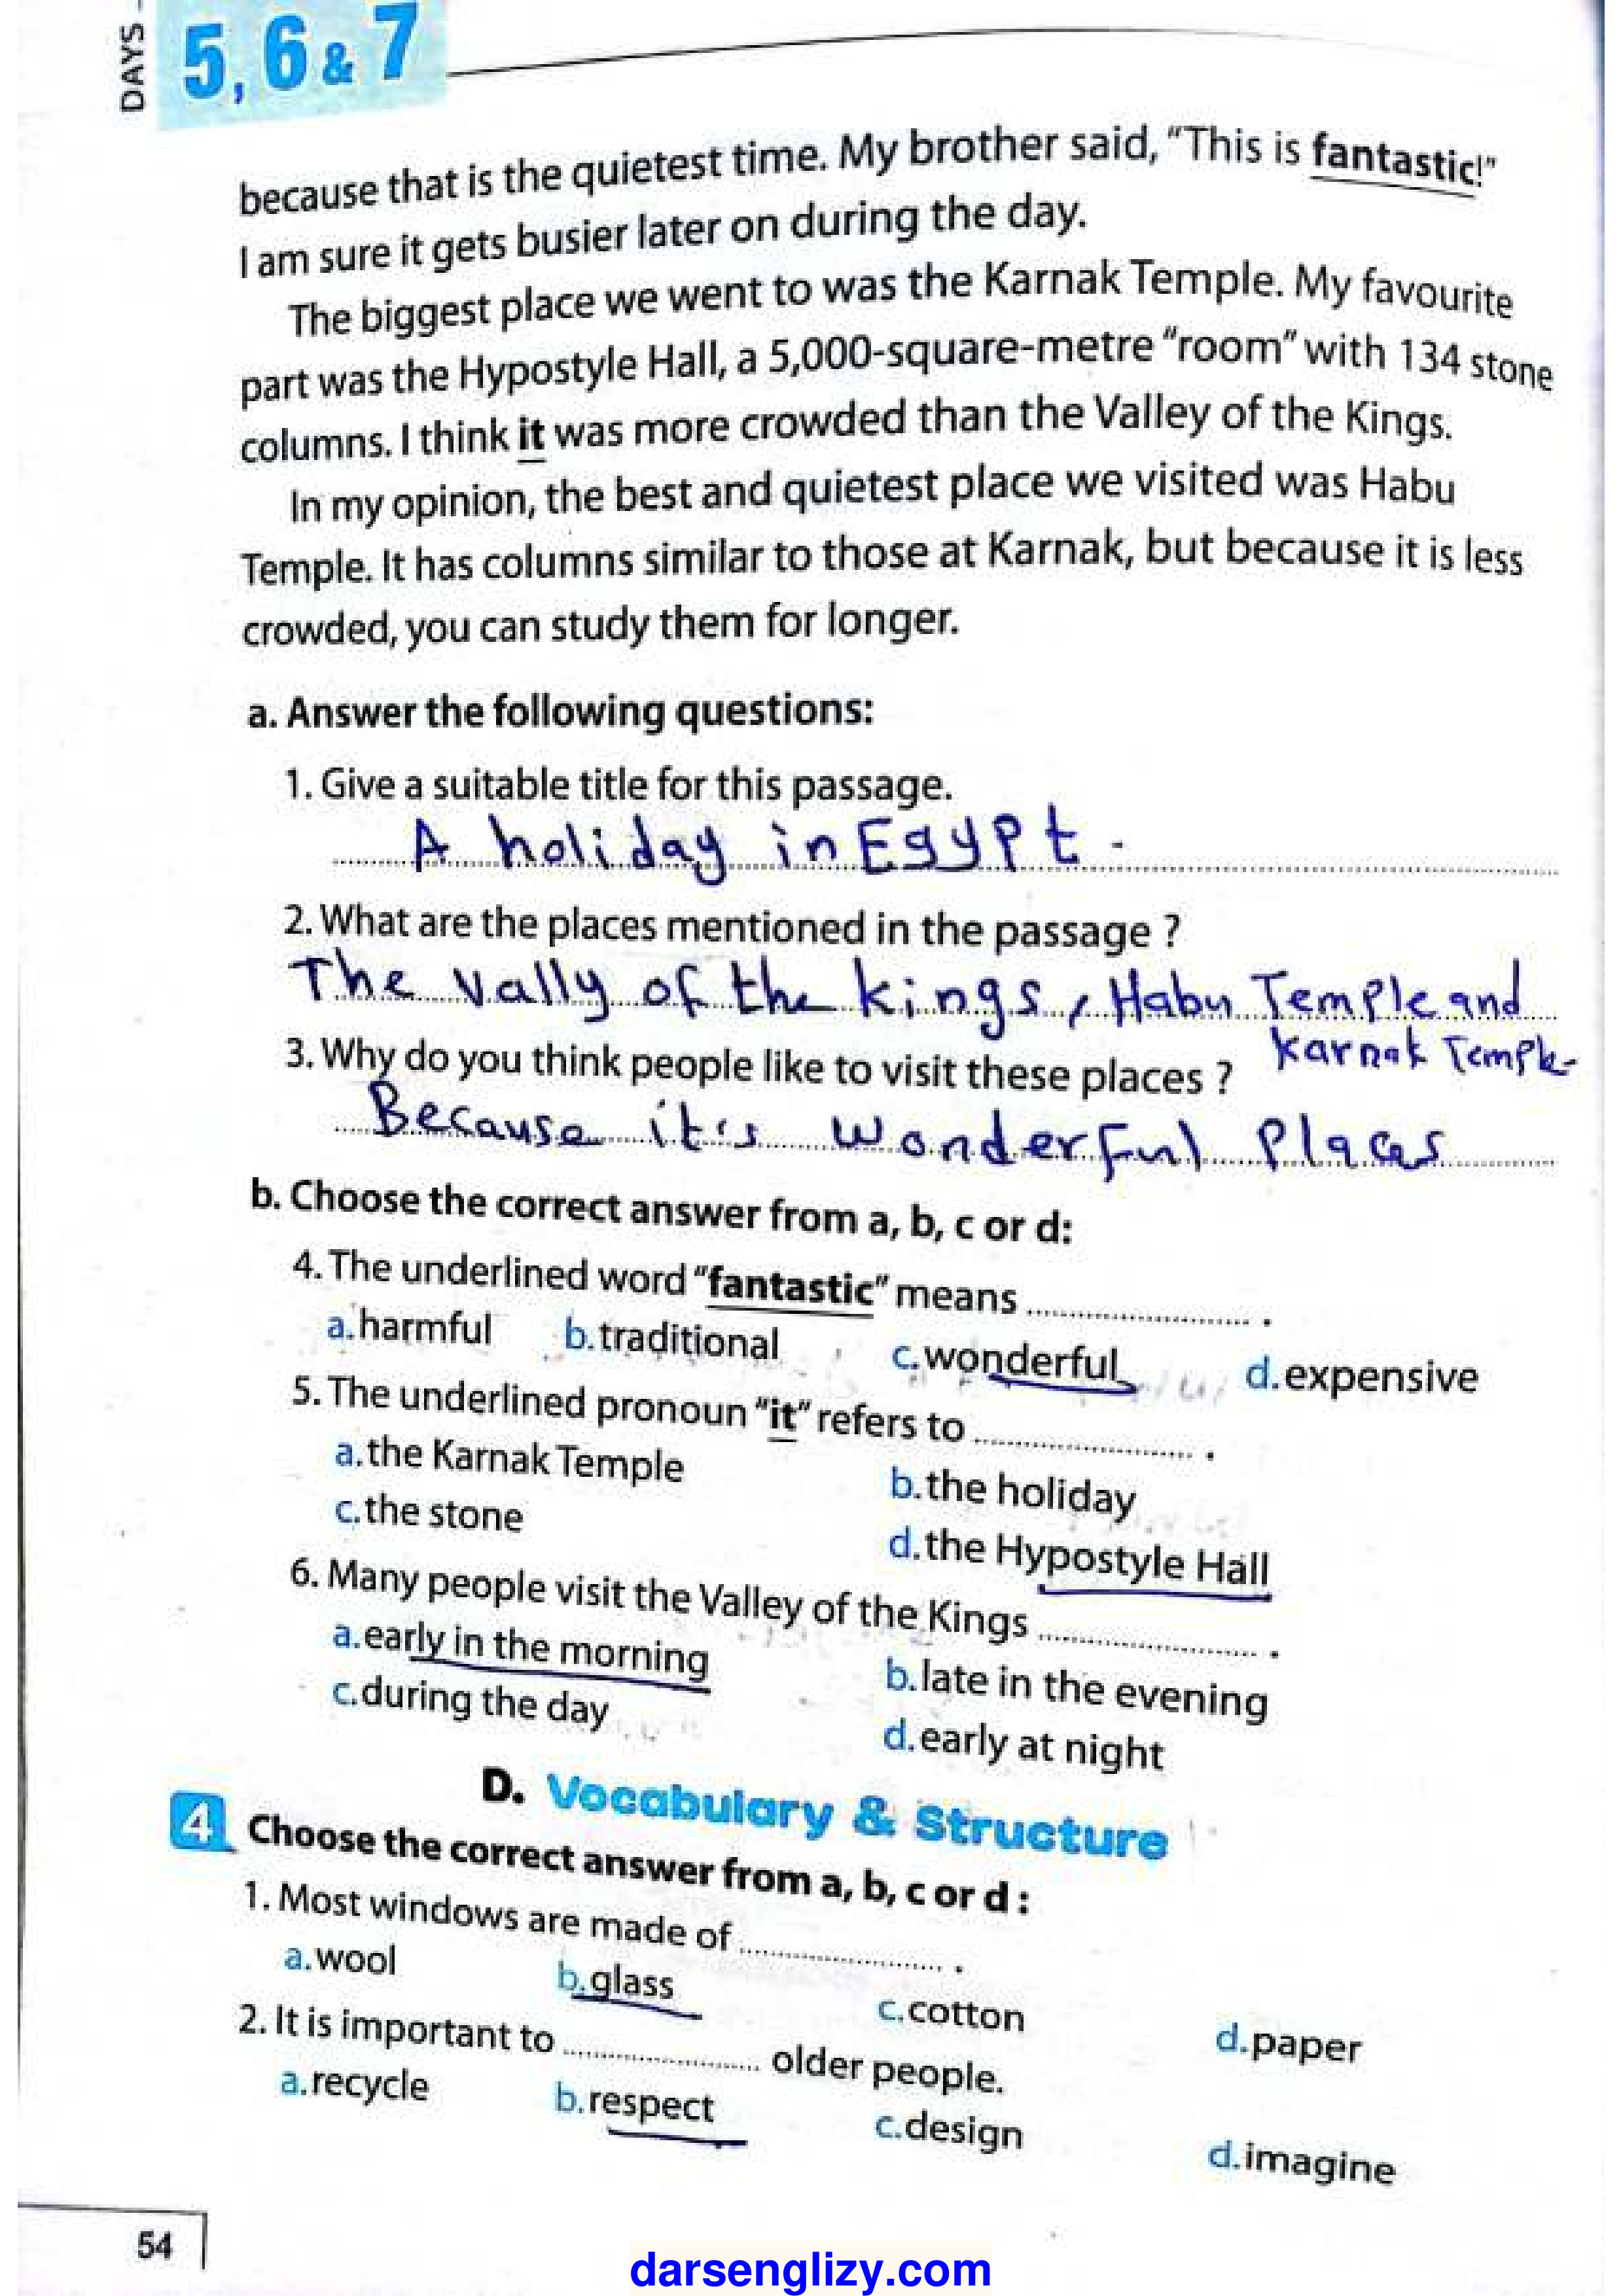 DAYS
5, 6 & 7
because that is the quietest time. My brother said, "This is fantastic!"
I am sure it gets busier later on during the day.
The biggest place we went to was the Karnak Temple. My favourite
part was the Hypostyle Hall, a 5,000-square-metre "room" with 134 stone
columns. I think it was more crowded than the Valley of the Kings.
In my opinion, the best and quietest place we visited was Habu
Temple. It has columns similar to those at Karnak, but because it is less
crowded, you can study them for longer.
a. Answer the following questions:
1. Give a suitable title for this passage.
A holiday in Egypt.
2. What are the places mentioned in the passage ?
The Vally of the kings, Habu Temple and
Karnak Temple.
3. Why do you think people like to visit these places ?
Because it's wonderful Places
b. Choose the correct answer from a, b, c or d:
4. The underlined word "fantastic" means .................... .
a. harmful b. traditional c. wonderful d. expensive
5. The underlined pronoun "it" refers to .................... .
a. the Karnak Temple b. the holiday
c. the stone d. the Hypostyle Hall
6. Many people visit the Valley of the Kings .................... .
a. early in the morning b. late in the evening
c. during the day d. early at night
D. Vocabulary & Structure
4 Choose the correct answer from a, b, c or d :
1. Most windows are made of .................... .
a. wool b. glass c. cotton d. paper
2. It is important to .................... older people.
a. recycle b. respect c. design d. imagine
54
darsenglizy.com